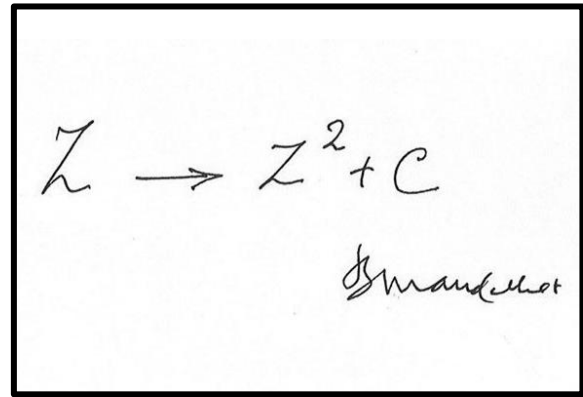 Z → Z² + C
B Mandelbrot